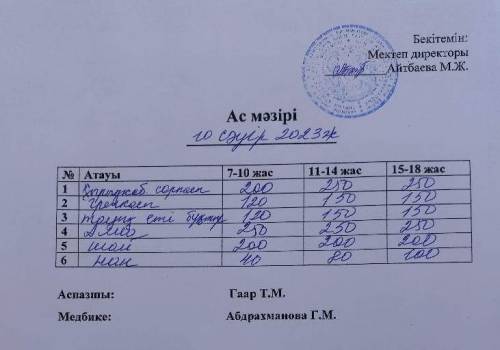 Бекітемін:
Мектеп директоры
Айтбаева М.Ж.
Ас мәзірі
10 сәуір 2023ж
№ Атауы 7-10 жас 11-14 жас 15-18 жас
1 сорпасы 200 250 250
2 Гречкасы 120 150 150
3 тауық еті 120 150 150
4 250 250 250
5 шай 200 200 200
6 нан 40 80 100
Аспазшы: Гаар Т.М.
Медбике: Абдрахманова Г.М.